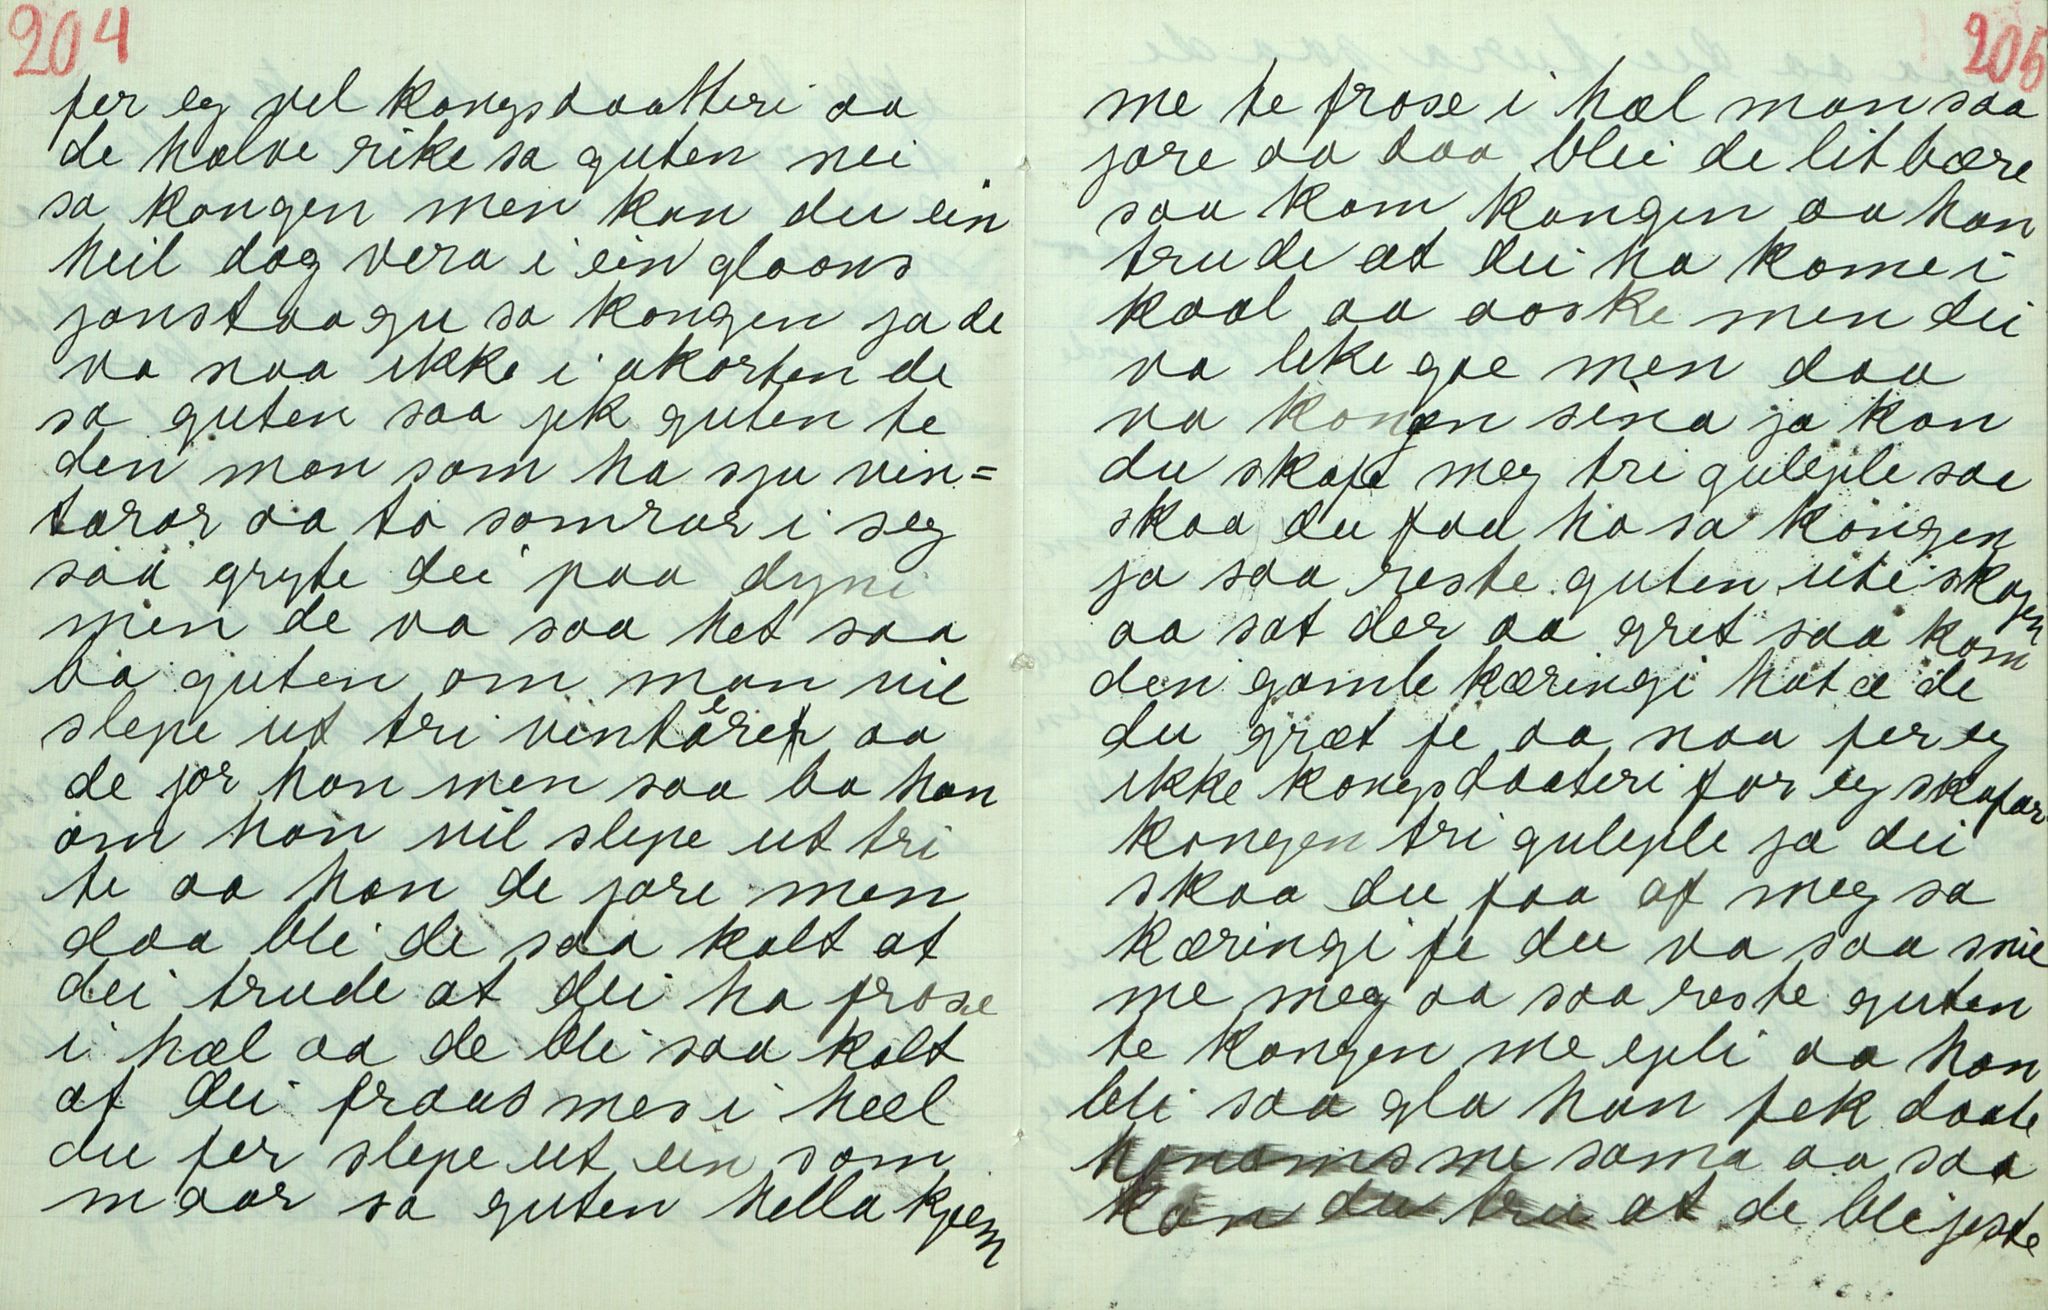 204
fer eg vel kongsdaatteri aa
de halve rike sa guten nei
sa kongen men kan du ein
heil dag vera i ein gloans
jonstaagu sa kongen ja de
va naa ikke i akorten de
sa guten saa jek guten te
den man som ha sju vin=
tarar aa to somrar i seg
saa gryte dei paa dyni
men de va saa het saa
ba guten om man vil
slepe ut tri vintåre aa
de jor han men saa ba han
om han vil slepe ut tri
te aa han de jore men
daa bli de saa kalt at
dei trude at dei ha frose
i hæl aa de bli saa kalt
at dei fraus mes i heel
du fer slepe ut ein som
maar sa guten hella kjem
205
me te frose i hæl man saa
jore aa daa blei de lit bære
saa kom kongen aa han
trude at dei ha kome i
kaal aa aoske men dei
va like goe men daa
va kongen sina ja kan
du skafe meg tri guleple sae
skaa du faa ho sa kongen
ja saa reste guten uti skogen
aa sat der aa gret saa kom
den gamle kæringi hat æ de
du græt fe aa naa fer eg
ikke kongsdaateri for eg skafar
kongen tri guleple ja dei
skaa du faa af meg sa
kæringi fe du va saa snil
me meg aa saa reste guten
te kongen me epli aa han
bli saa gla han fek daate
honoms me sama aa saa
kan du tru at de bli jeste